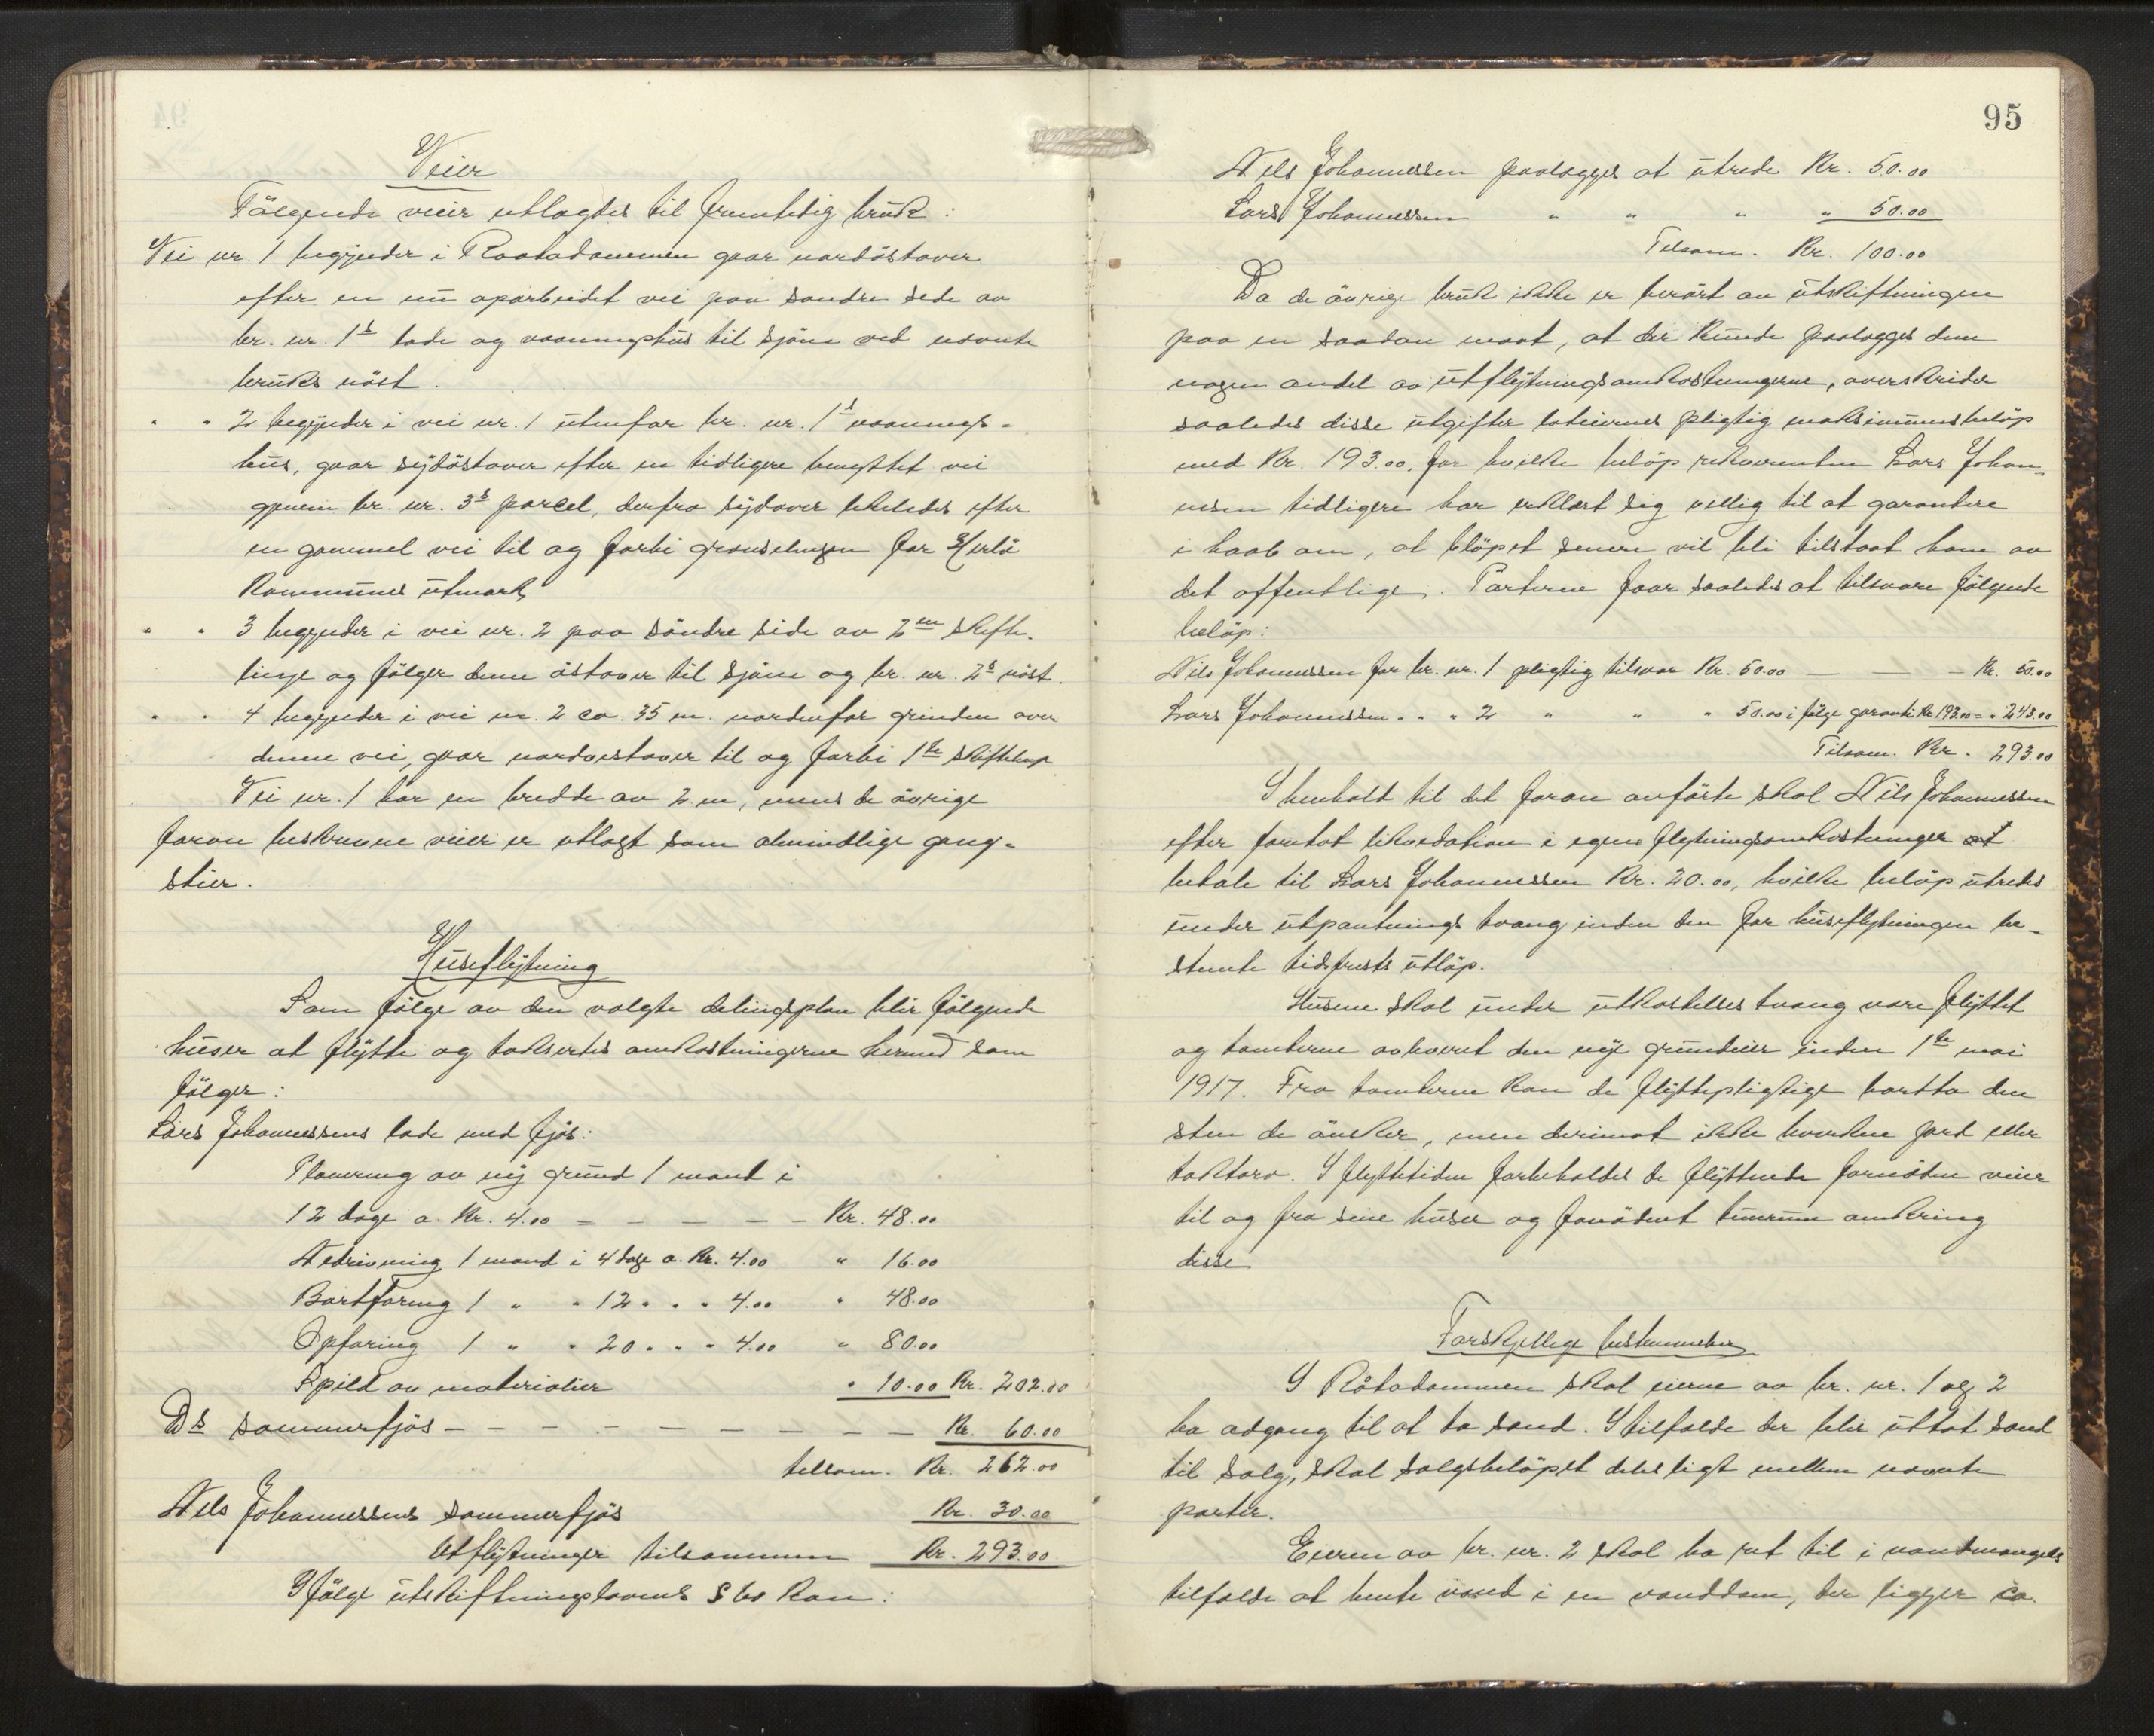 Veier
Følgende veier utlagdes til fremtidig bruk:
Vei nr. 1 begynder i Raatadammen gaar nordöstover
efter en nu oparbeidet vei paa søndre side av
br. nr. 1s lade og vaaningshus til sjøen ved nævnte
bruks nöst.
" " 2 begynder i vei nr. 1 utenfor br. nr. 1s vaanings-
hus, gaar sydöstover efter en tidligere benyttet vei
gjennem br. nr. 3s parcel, derfra sydover likeledes efter
en gammel vei til og forbi grænselinjen for Herlö
Kommunes utmark,
" " 3 begynder i vei nr. 2 paa söndre side av 2en skifte-
linje og fölger denne östover til sjöen og br. nr. 2s nöst.
" " 4 begynder i vei nr. 2 ca. 35 m. nordenfor grinden over
denne vei, gaar nordvestover til og forbi 1ste skiftelinje
Vei nr. 1 har en bredde av 2 m, mens de övrige
foran beskrevne veier er utlagt som almindelige gang-
stier.
Huseflytning
Som fölge av den valgte delingsplan blir fölgende
huser at flytte og takseres omkostningerne hermed som
fölger:
Lars Johannessens lade med fjös:
Planering av ny grund 1 mand i
12 dage a. Kr. 4.00 – – – – – Kr. 48.00
Nedrivning 1 mand i 4 dage a. Kr. 4.00 " 16.00
Bortföring 1 " " 12 " " " 4.00 " 48.00
Opföring 1 " " 20 " " " 4.00 " 80.00
Spild av materialier " 10.00 Kr. 202.00
Ds sommerfjös – – – – – – – – – Kr. 60.00
tilsam. Kr. 262.00
Nils Johannessens sommerfjös Kr. 30.00
Utflytninger tilsammen Kr. 293.00
I fölge utskiftningslovens § 60 kan:
95
Nils Johannessen paalægges at utrede Kr. 50.00
Lars Johannessen " " " " 50.00
Tilsam. Kr. 100.00
Da de övrige bruk ikke er berört av utskiftningen
paa en saadan maat, at der kunde paalægges dem
nogen andel av utflytningsomkostningerne, overskrider
saaledes disse utgifter lodeiernes pligtig maksimumsbelöp
med Kr. 193.00, for hvilke belöp rekvirenten Lars Johan-
nesen tidligere har erklært sig villig til at garantere
i haab om, at blöpet senere vil bli tilstaat ham av
det offentlige. Parterne faar saaledes at tilsvare fölgende
belöp:
Nils Johannessen for br. nr. 1 pligtig tilsvar Kr. 50.00 – – – Kr. 50.00
Lars Johannessen " " " 2 " " " 50.00 i fölge garanti Kr 193.00 = " 243.00
Tilsam. Kr. 293.00
I henhold til det foran anförte skal Nils Johannessen
efter foretat likvidation i egne flytningsomkostninger at
betale til Lars Johannessen Kr. 20.00, hvilke belöp utredes
under utpantnings tvang inden den for huseflytningen be-
stemte tidsfrists utlöp.
Husene skal under utkastelses tvang være flyttet
og tomterne avlevert den nye grundeier inden 1ste mai
1917. Fra tomterne kan de flyttepligtige bortta den
sten de önsker, men derimot ikke hverken jord eller
taktorv. I flyttetiden forbeholdes de flyttende fornödne veier
til og fra sine huser og fonödent tunrum omkring
disse
Forskjellige bestemmelser
I Råtadammen skal eierne av br. nr. 1 og 2
ha adgang til at ta sand. I tilfælde der blir uttat sand
til salg, skal salgsbelöpet deles ligt mellem nævnte
parter.
Eieren av br. nr. 2 skal ha ret til i vandmangels
tilfælde at hente vand i en vanddam, der ligger ca.